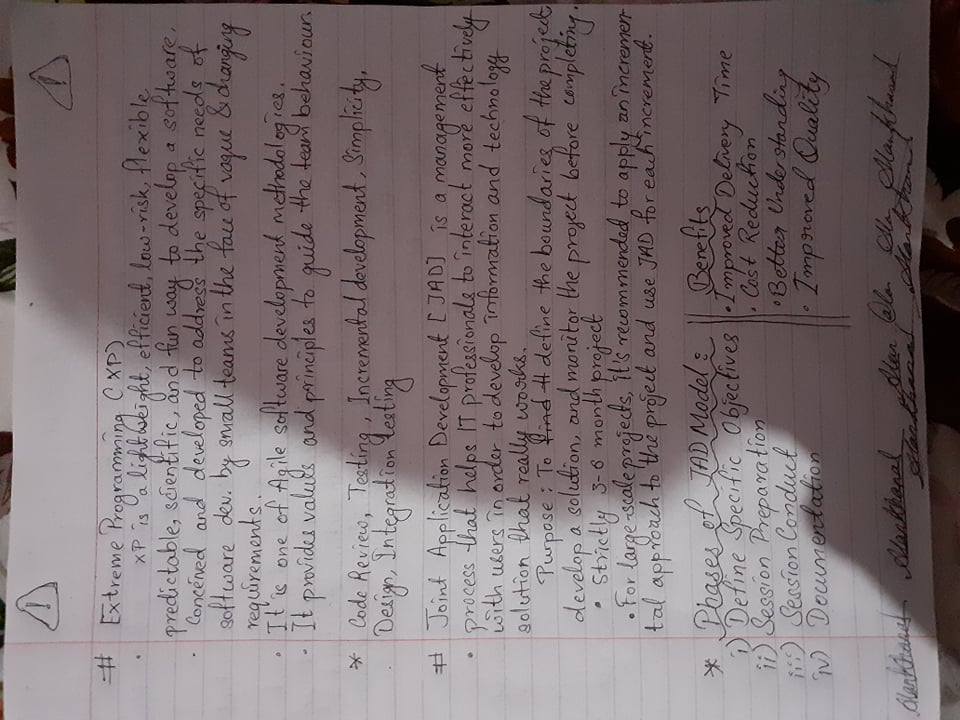 ! !
# Extreme Programming (XP)
· XP is a lightweight, efficient, low-risk, flexible,
predictable, scientific, and fun way to develop a software.
· Conceived and developed to address the specific needs of
software dev. by small teams in the face of vague & changing
requirements.
· It is one of Agile software development methodologies.
· It provides values and principles to guide the team behaviour.
* Code Review, Testing, Incremental development, Simplicity,
· Design, Integration testing
# Joint Application Development [JAD] is a management
· process that helps IT professionals to interact more effectively
with users in order to develop information and technology
solution that really works.
Purpose: To find tt define the boundaries of the project,
develop a solution, and monitor the project before completing.
• Strictly 3-6 month project
• For large-scale projects, it's recommended to apply an incremen-
tal approach to the project and use JAD for each increment.
* Phases of JAD Model:
i) Define Specific Objectives
ii) Session Preparation
iii) Session Conduct
iv) Documentation
Benefits
• Improved Delivery Time
• Cost Reduction
• Better Understanding
• Improved Quality